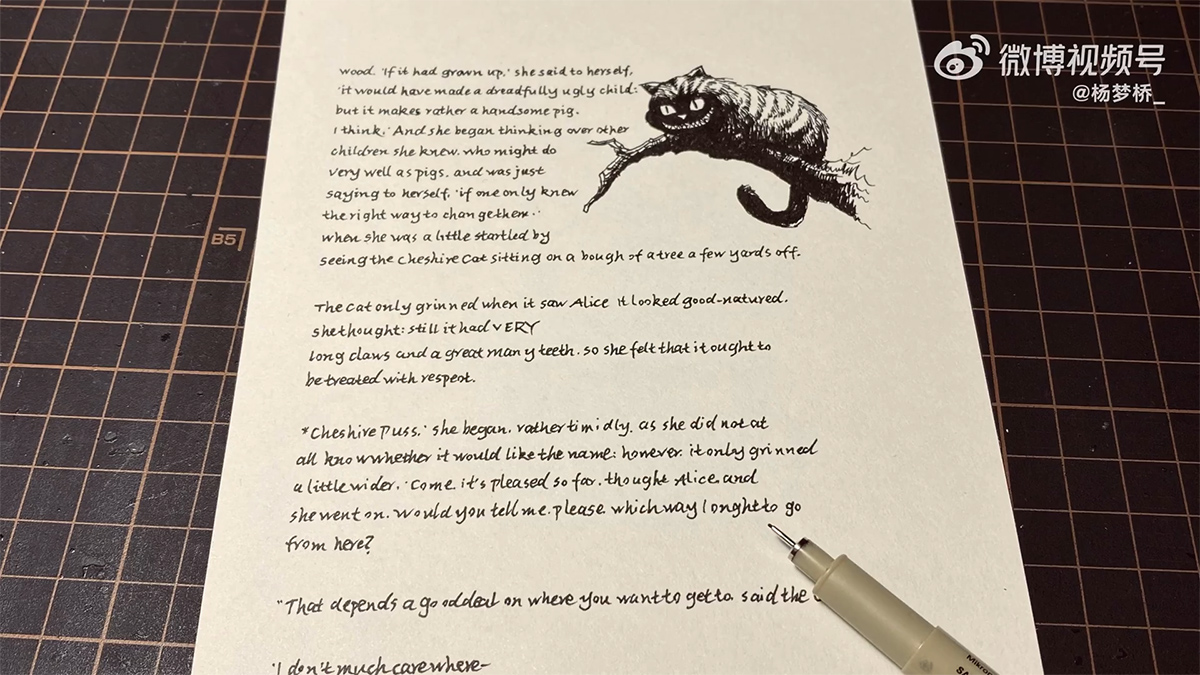 微博视频号
@杨梦桥_
B5
wood. 'If it had grown up,' she said to herself,
'it would have made a dreadfully ugly child:
but it makes rather a handsome pig.
I think.' And she began thinking over other
children she knew. who might do
very well as pigs. and was just
saying to herself, 'if one only knew
the right way to change them.'
when she was a little startled by
seeing the Cheshire Cat sitting on a bough of a tree a few yards off.
The cat only grinned when it saw Alice it looked good-natured.
she thought: still it had VERY
long claws and a great many teeth. so she felt that it ought to
be treated with respect.
"Cheshire Puss.' she began. rather timidly. as she did not at
all know whether it would like the name: however. it only grinned
a little wider. 'Come. it's pleased so far. thought Alice and
she went on. would you tell me. please. which way I onght to go
from here?
"That depends a good deal on where you want to get to. said the
'I don't much care where-
Micron